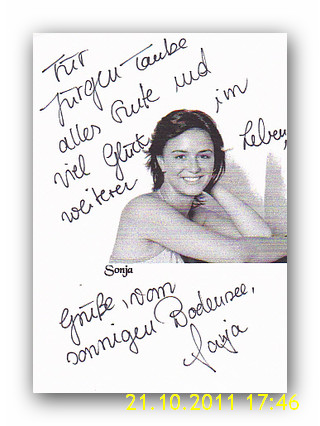 Für
Jürgen Taube
alles Gute und
viel Glück im
weiteren Leben,
Sonja
Grüße vom
sonnigen Bodensee,
Sonja
21.10.2011 17:46